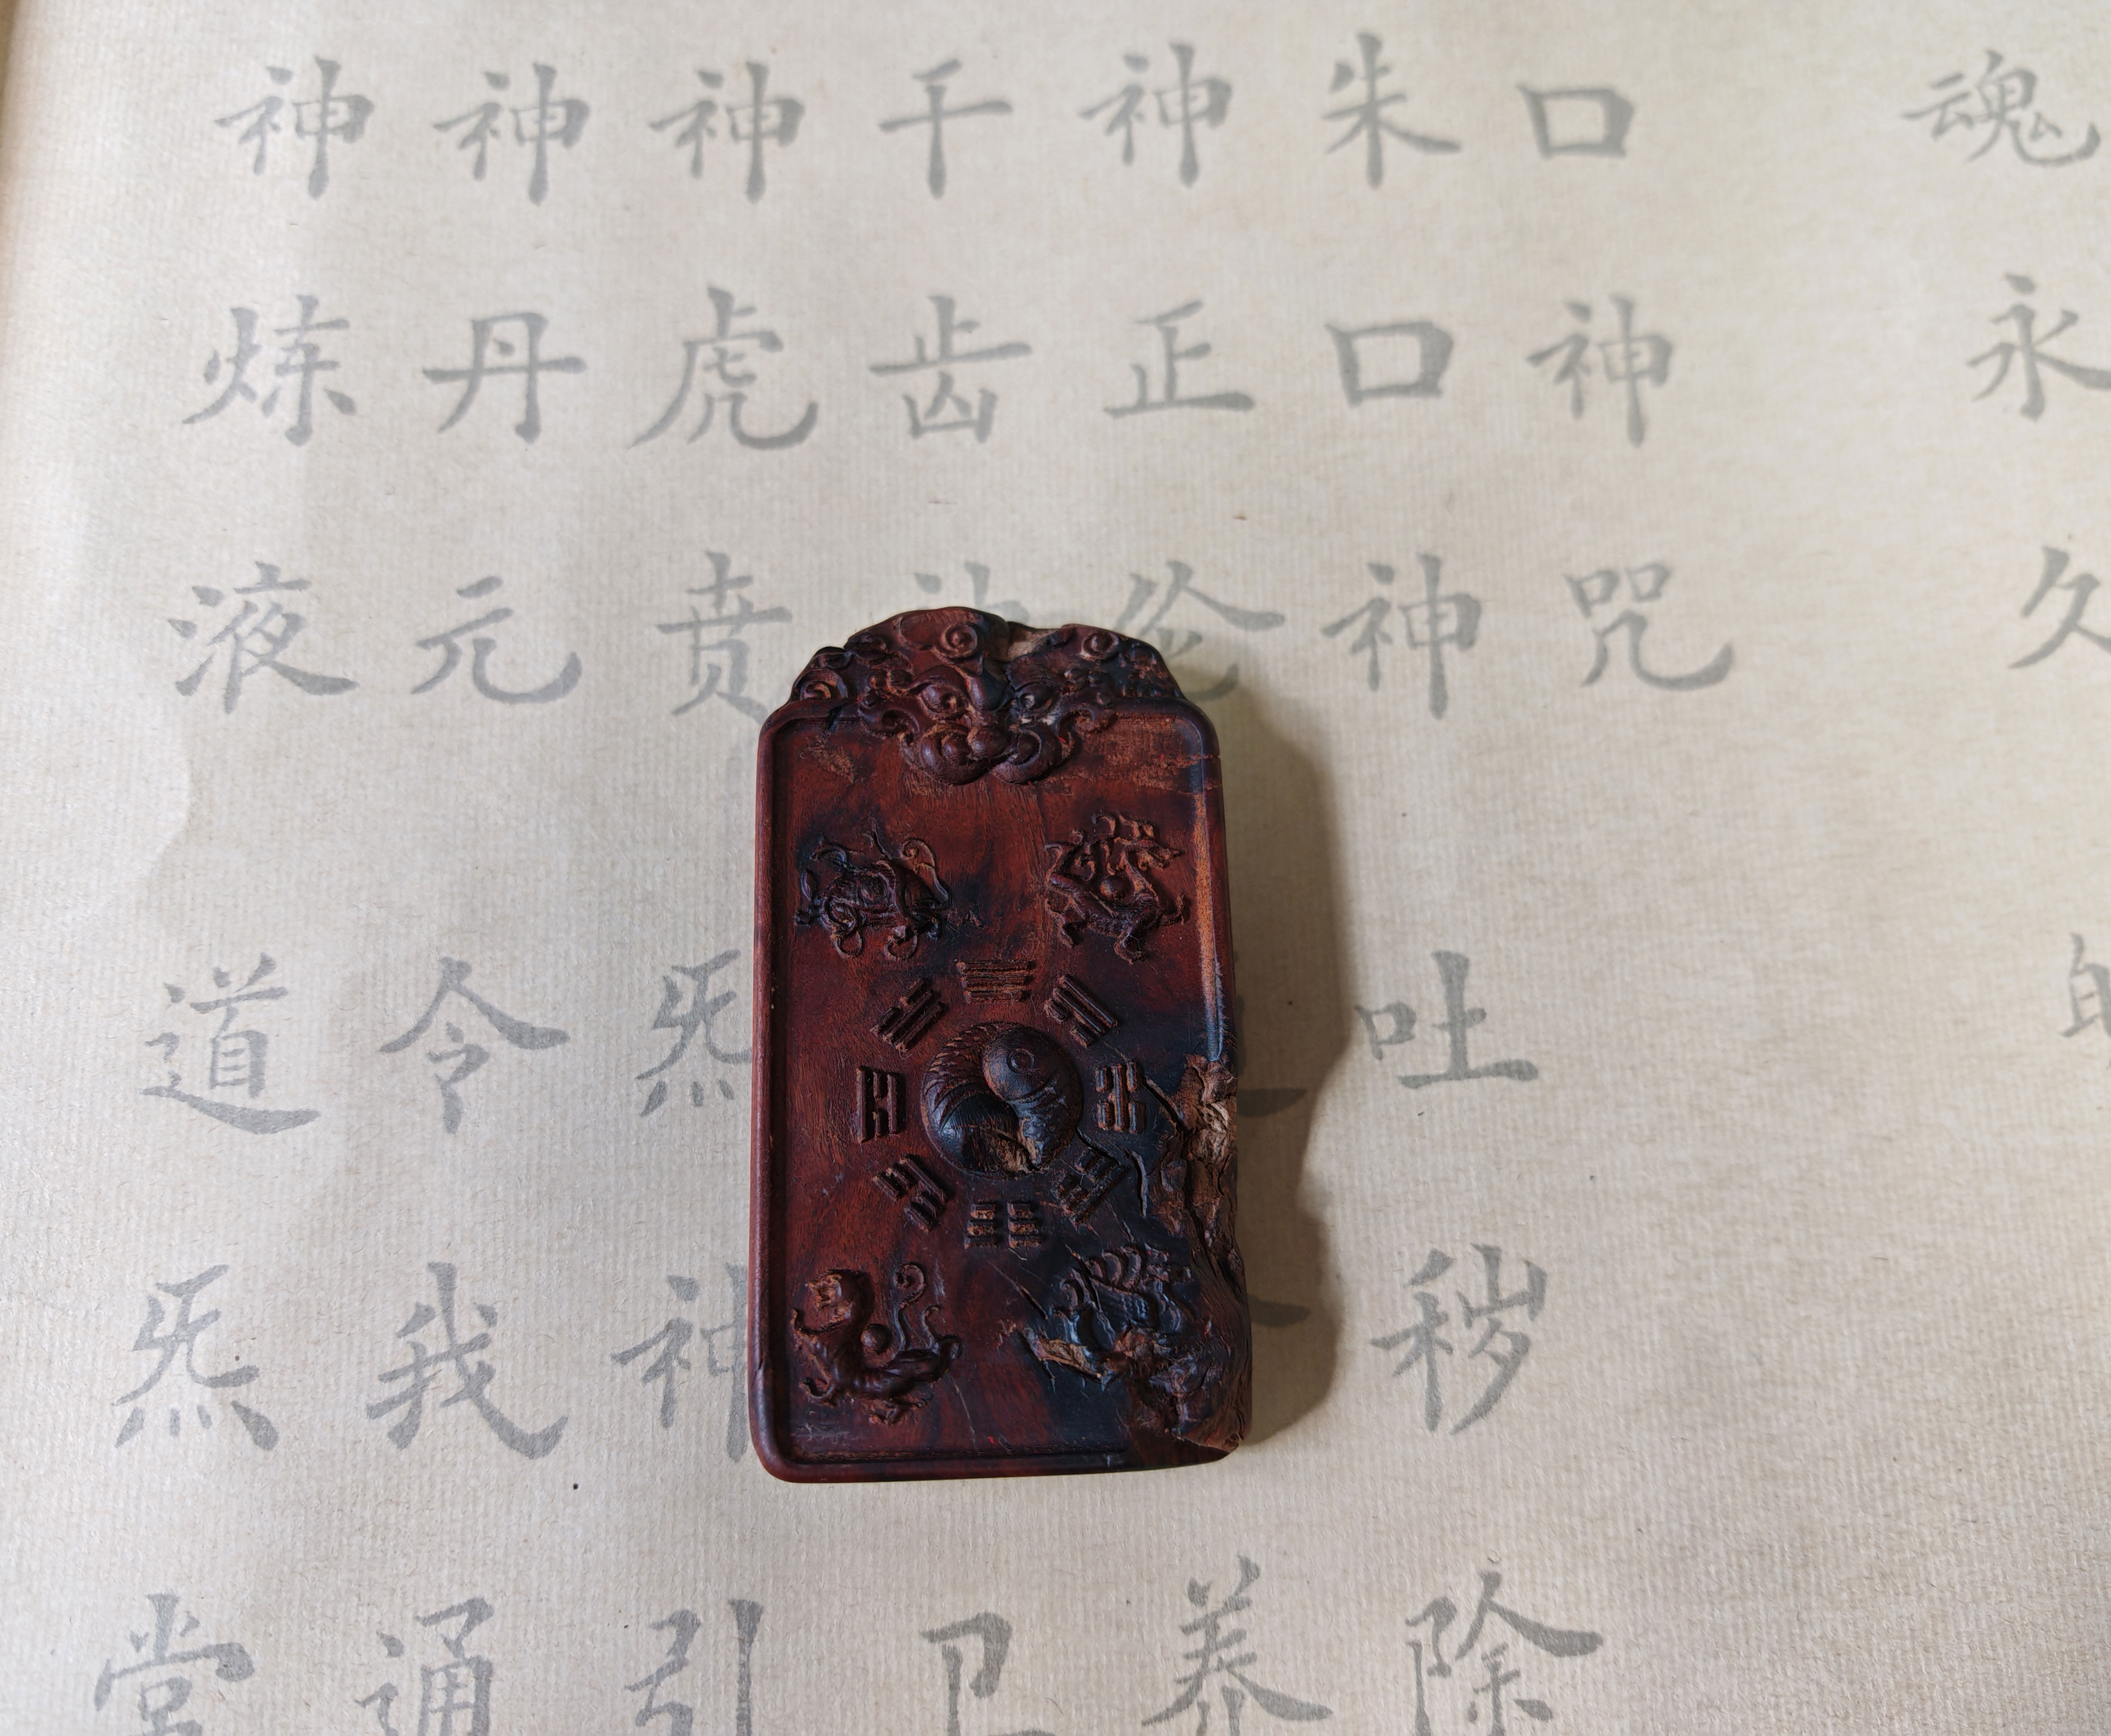 魂永久
口神咒
朱口神吐秽除
神正伦养
千齿神卫
神虎贲炁神引
神丹元令我通
神炼液道炁常